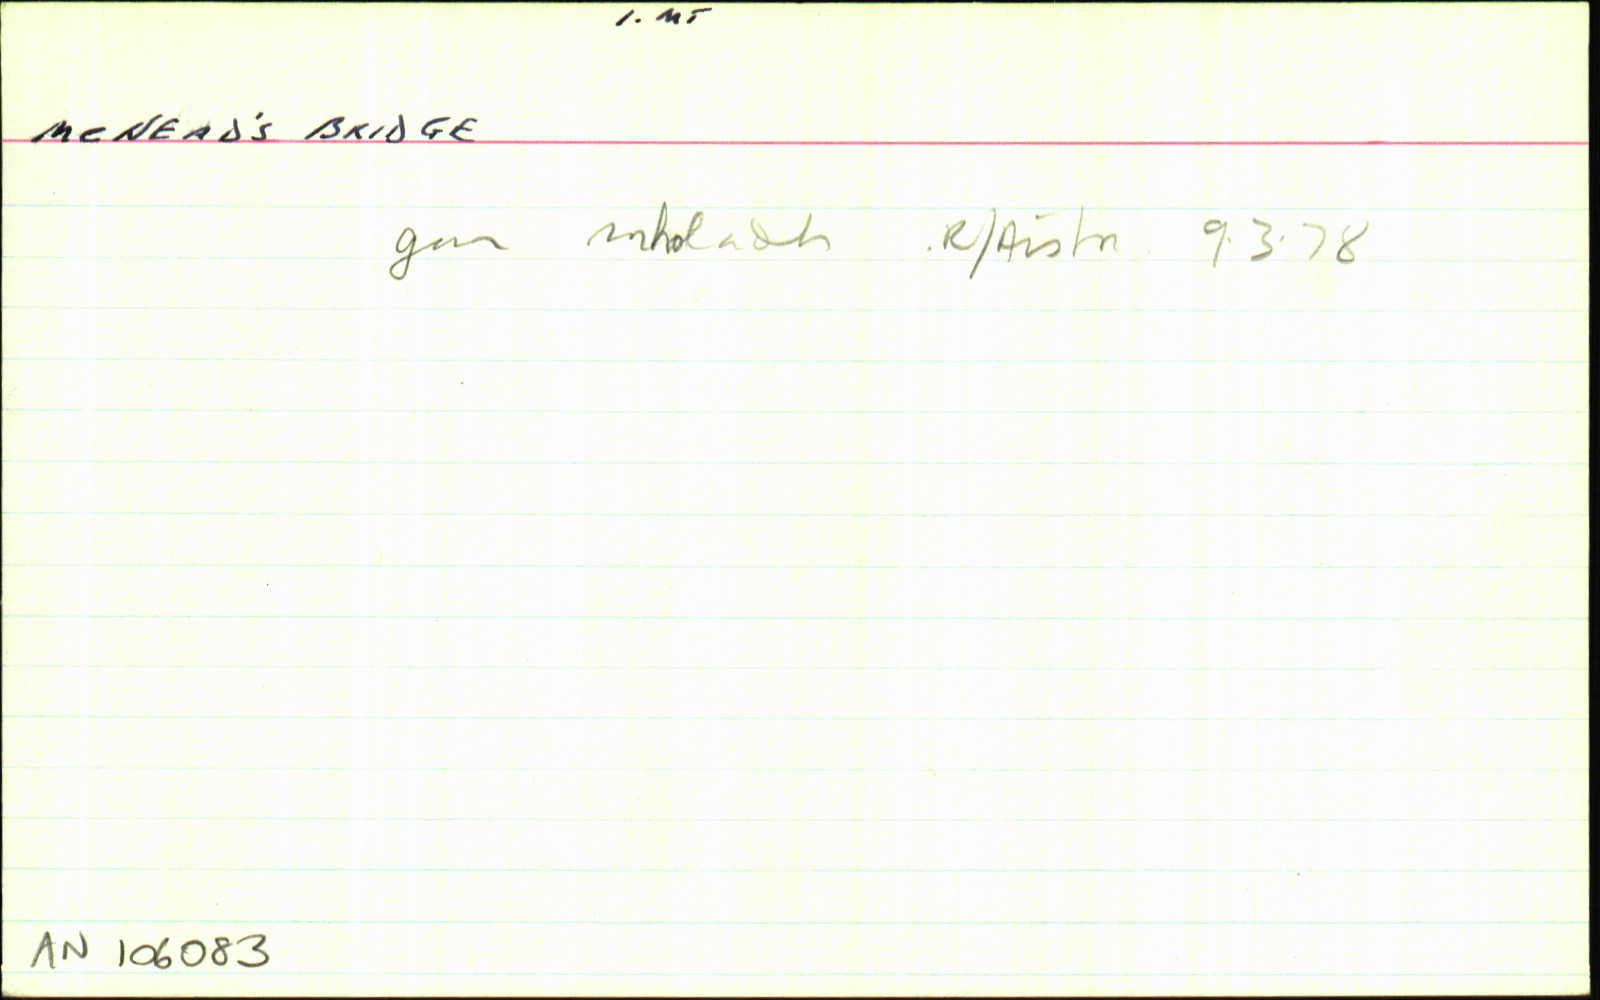 1. MT
McNEAD'S BRIDGE
R/Aistn 9.3.78
AN 106083